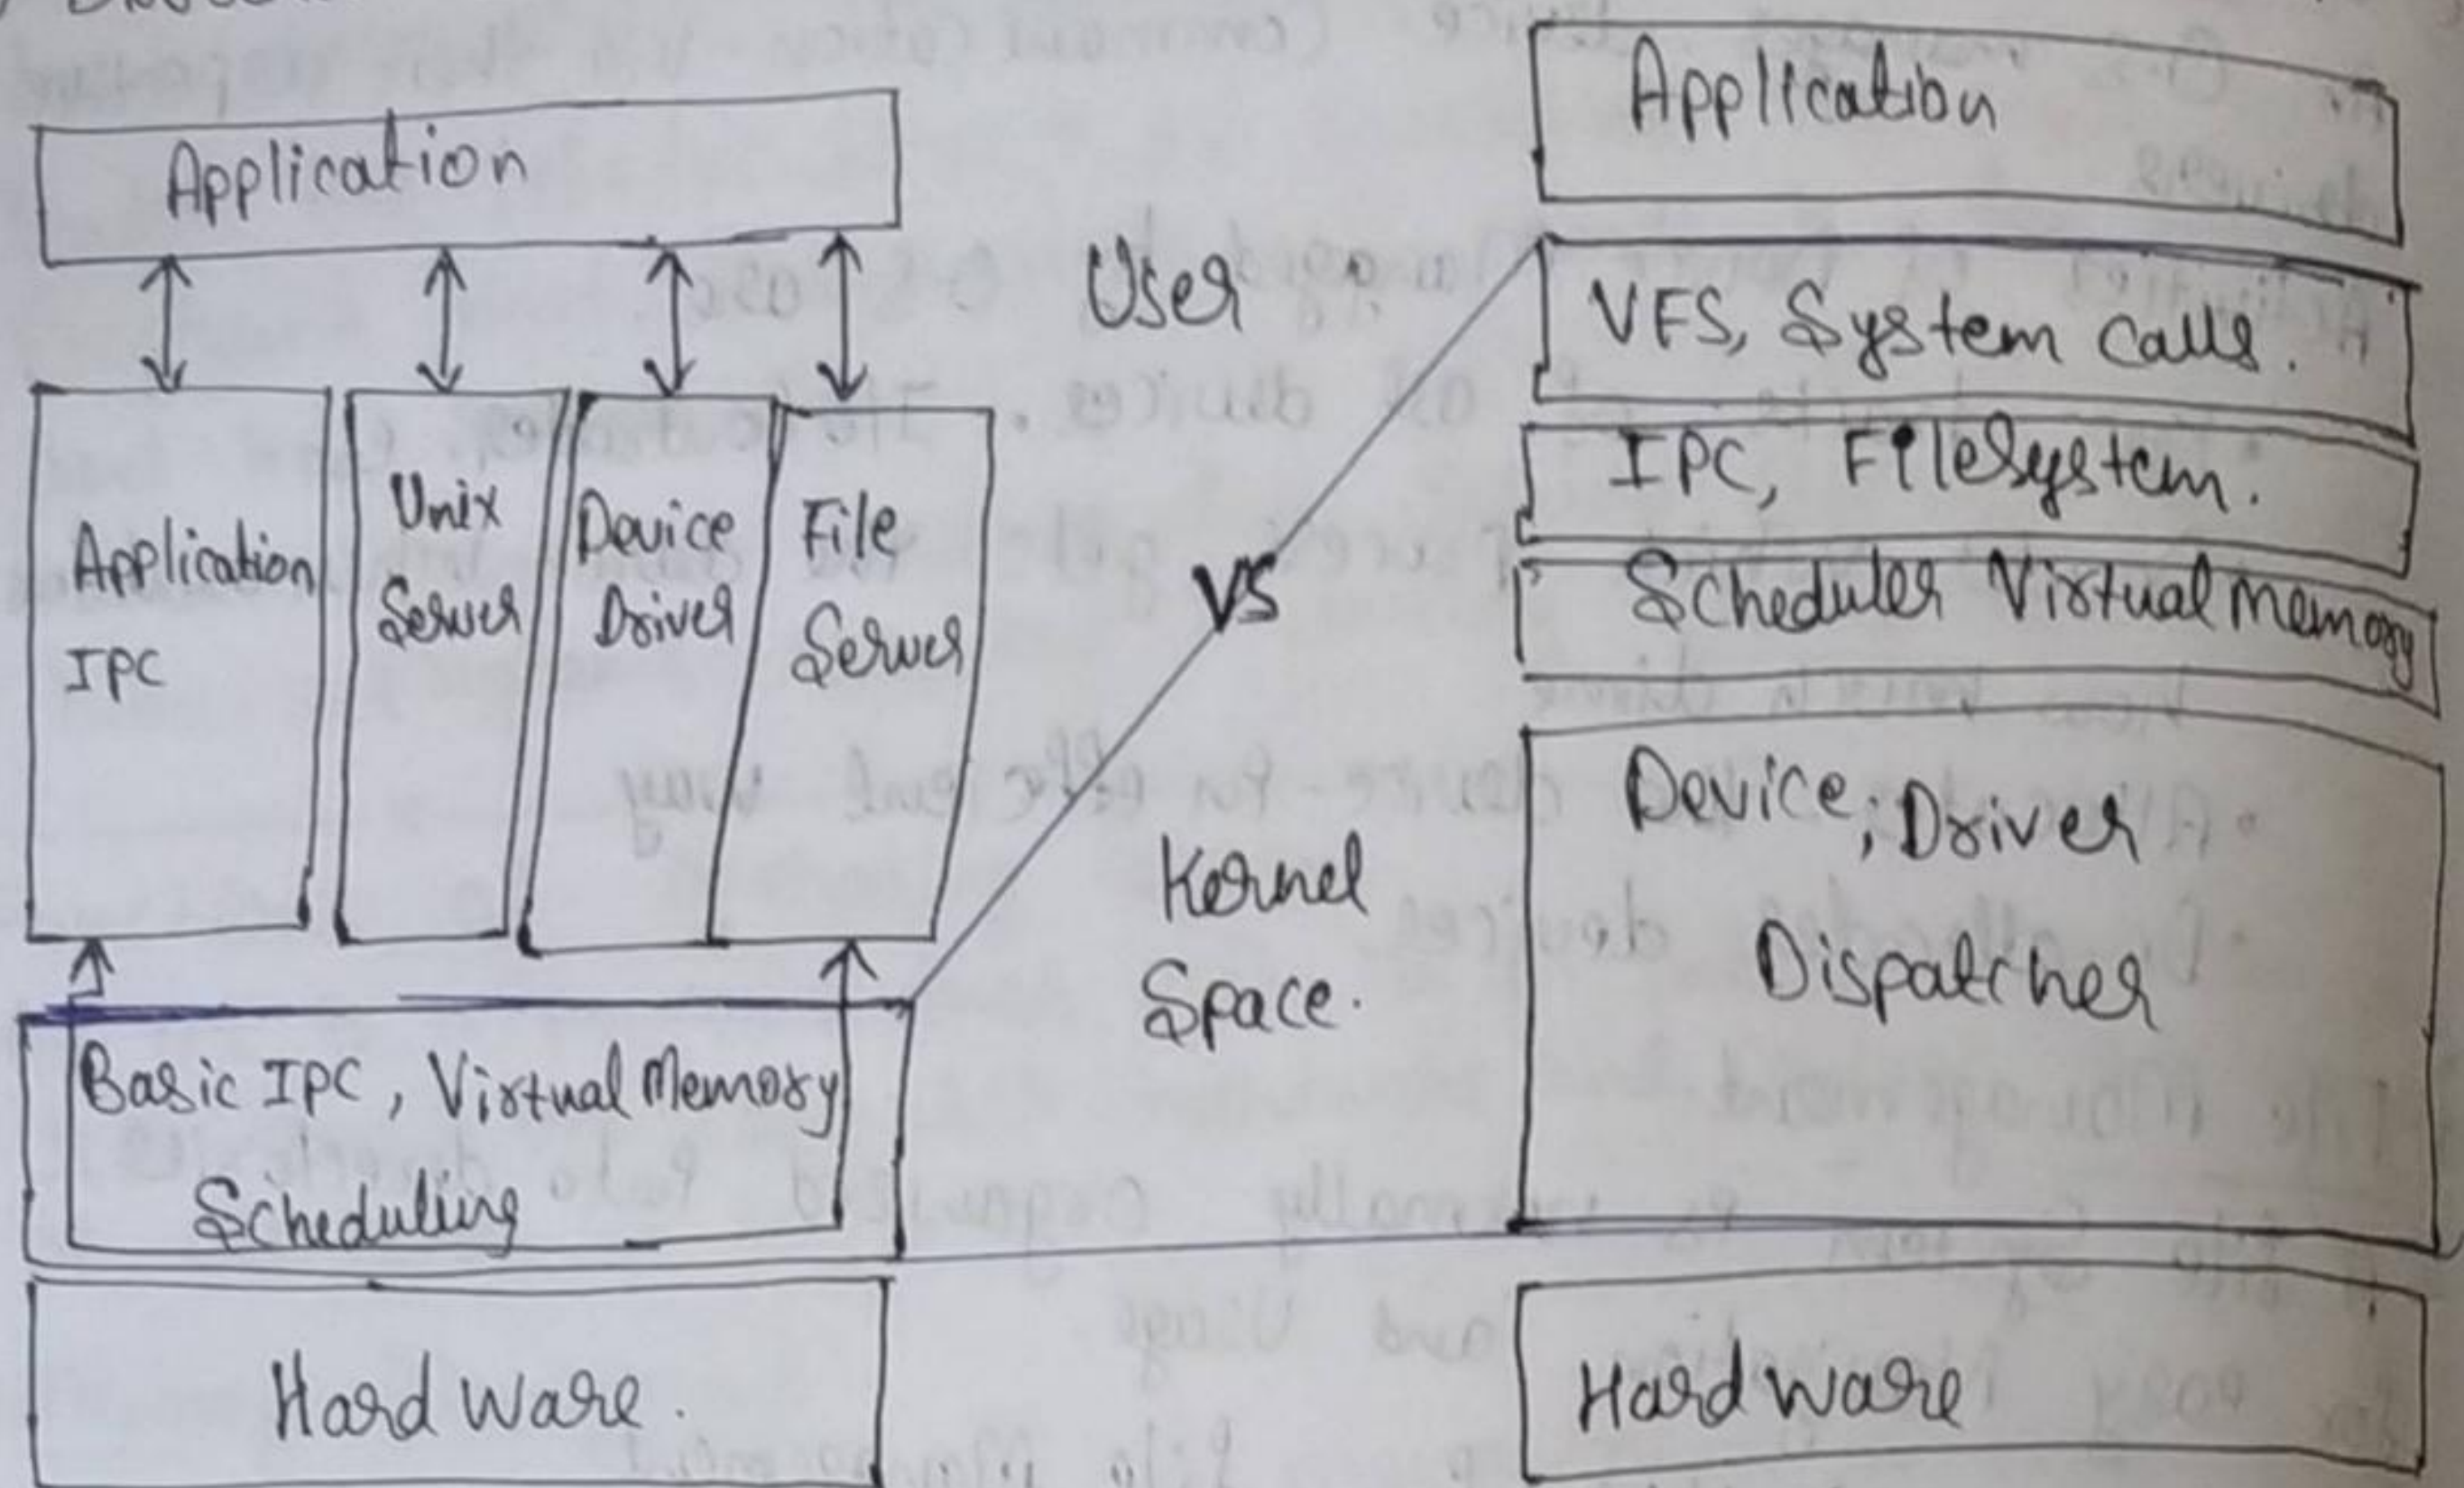 Application
Application
IPC
Unix
Server
Device
Driver
File
Server
Basic IPC, Virtual Memory
Scheduling
Hard Ware.
User
VS
Kernel
Space.
Application
VFS, System Calls.
IPC, FileSystem.
Scheduler Virtual Memory
Device, Driver
Dispatcher
Hard ware